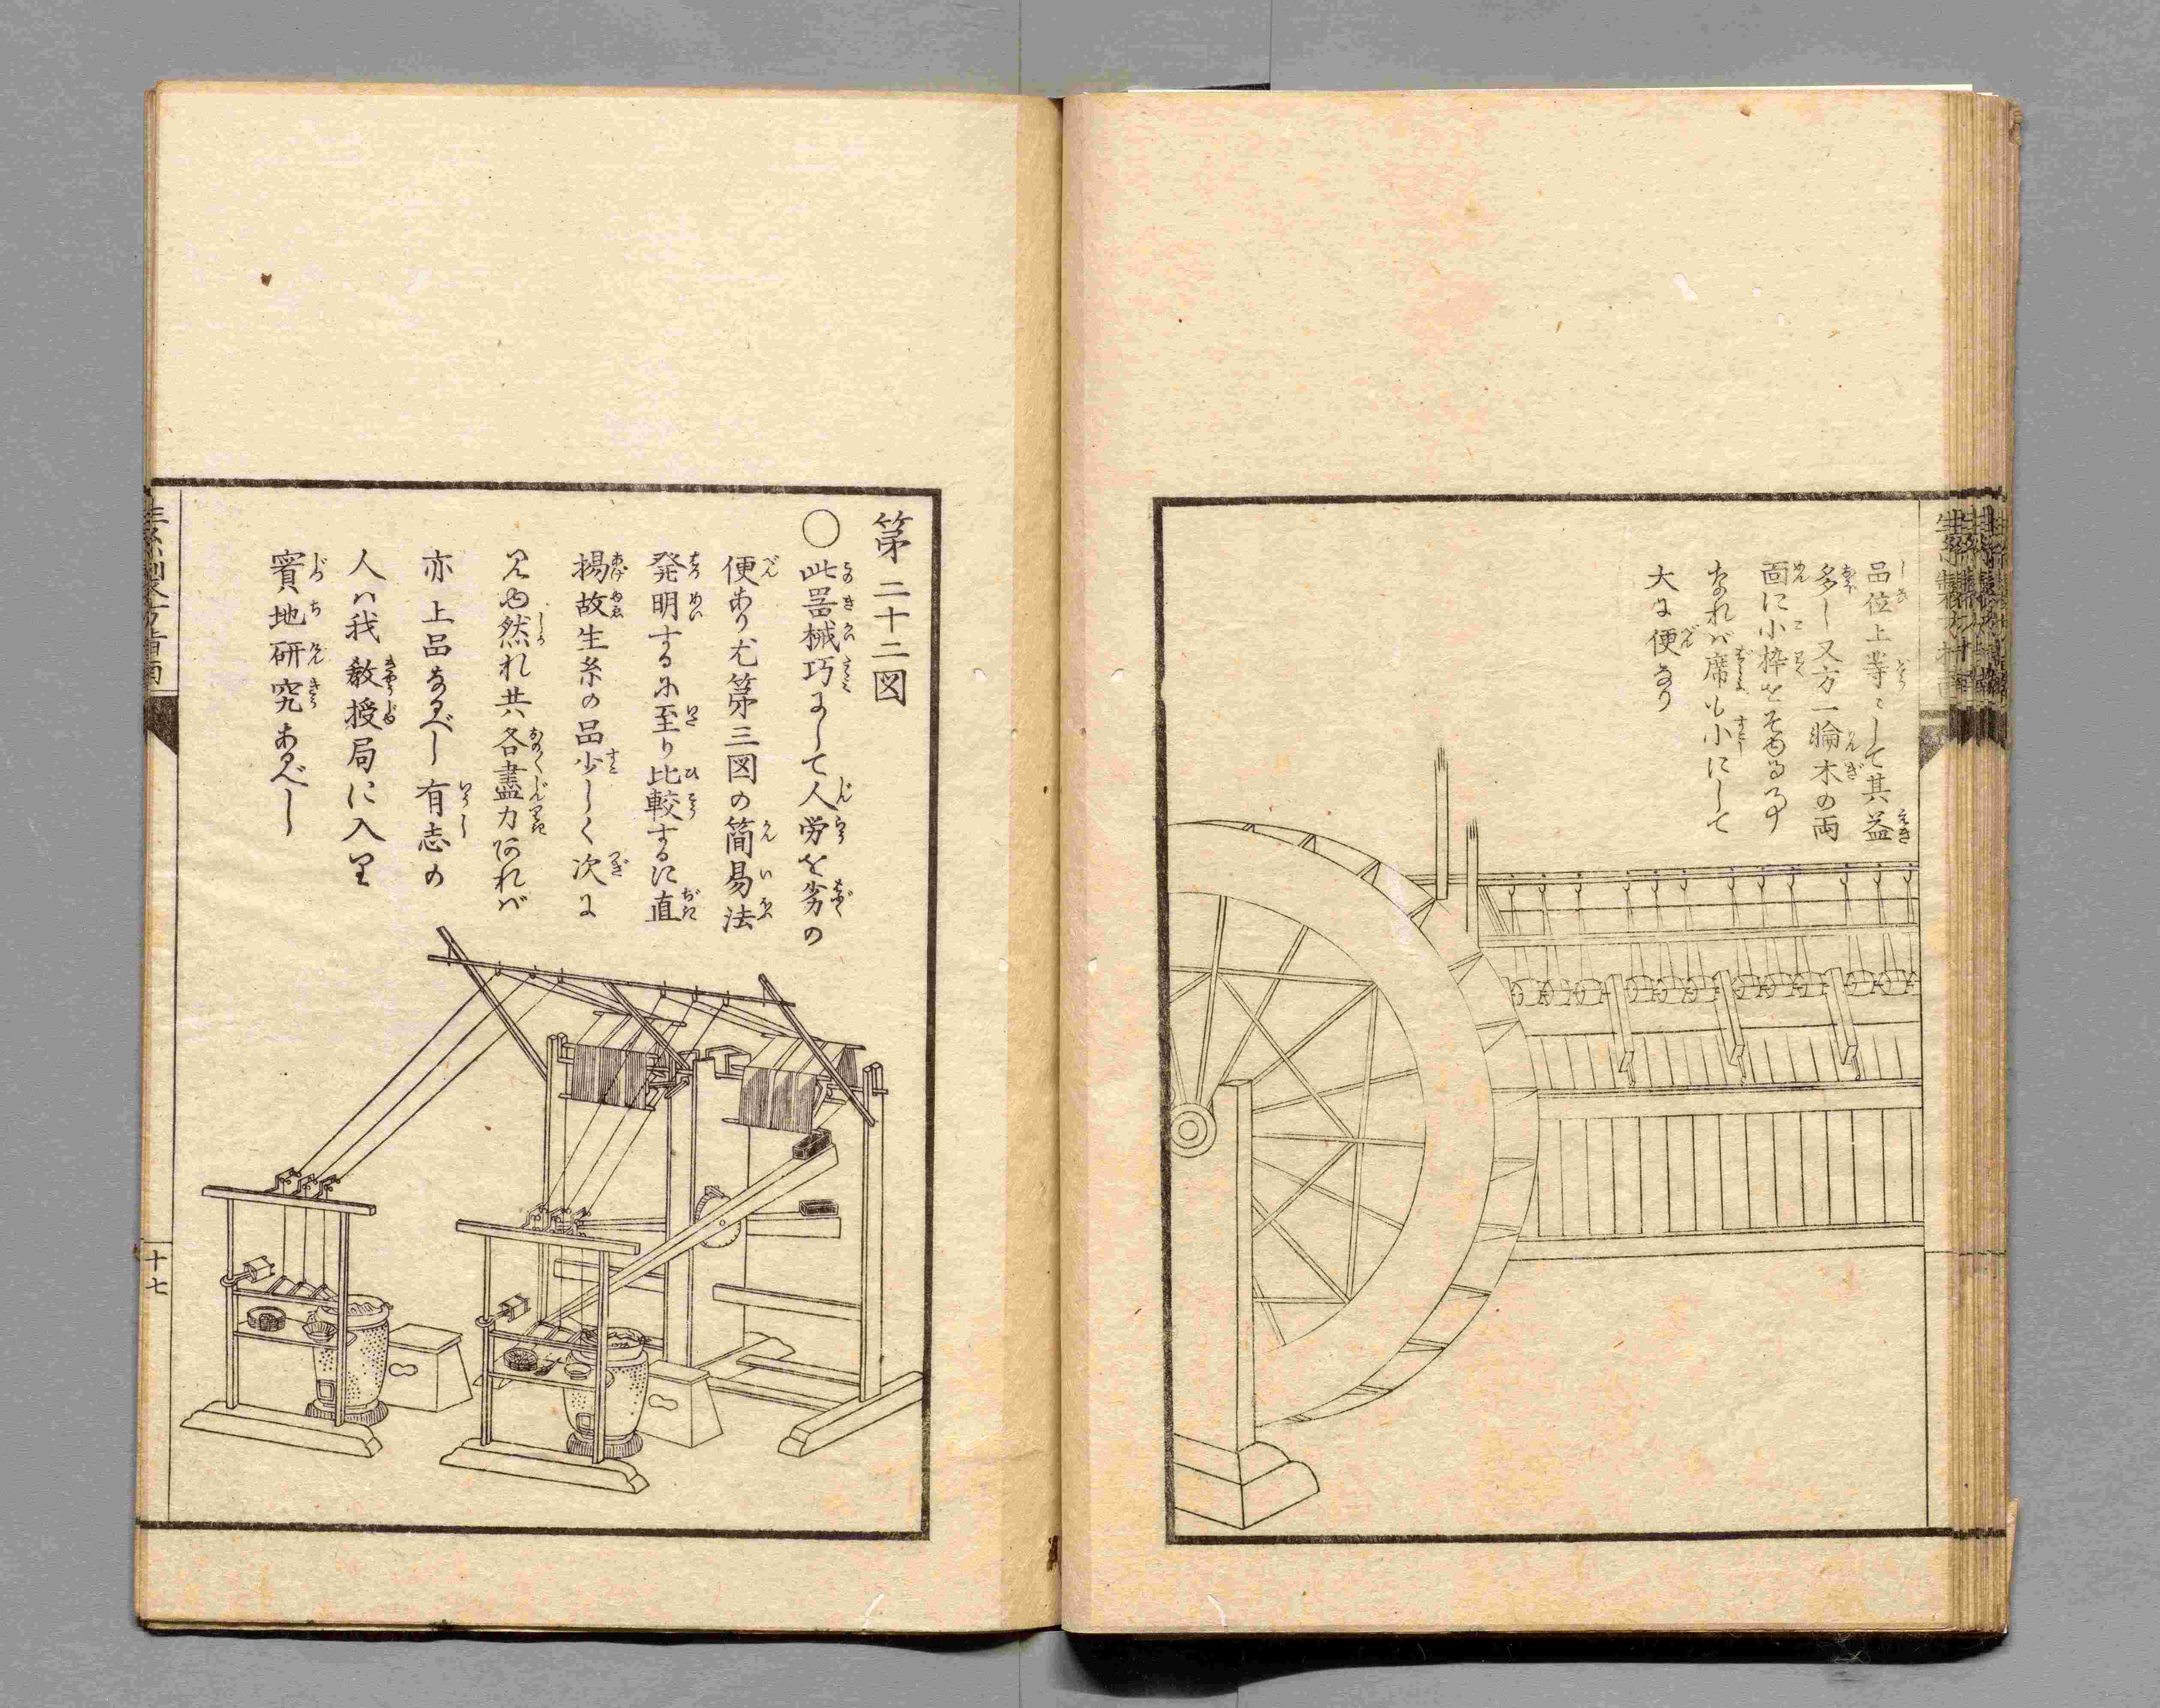 品位上等にして其益
多し又方一輪木の両
面に小枠をそなゆる事
なれバ席も小にして
大に便なり
第二十二図
〇此噐械巧にして人労を劣の
便あり尤第三図の簡易法
発明するに至り比較するに直
揚故生糸の品少しく次に
見ゆ然れ共各盡力あれバ
亦上品なるべし有志の
人ハ我教授局に入り
實地研究あるべし
生糸製方指南
十七